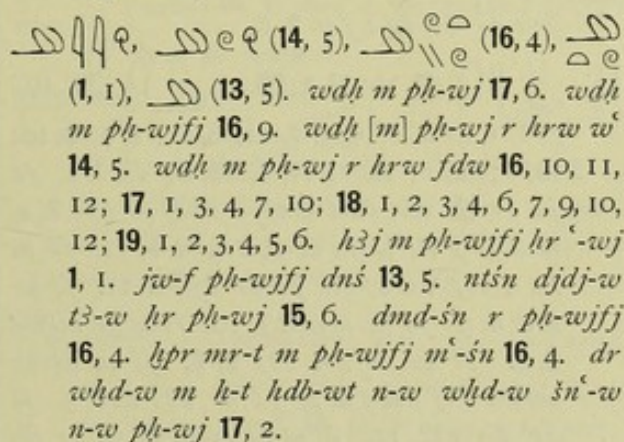 𓄖𓇋𓇋𓄹, 𓄖𓏲𓄹 (14, 5), 𓄖𓏲𓏏𓏭𓏲 (16, 4), 𓄖𓏏𓏲
(1, 1), 𓄖 (13, 5). wdḥ m pḥ-wj 17, 6. wdḥ
m pḥ-wjfj 16, 9. wdḥ [m] pḥ-wj r hrw wꜥ
14, 5. wdḥ m pḥ-wj r hrw fdw 16, 10, 11,
12; 17, 1, 3, 4, 7, 10; 18, 1, 2, 3, 4, 6, 7, 9, 10,
12; 19, 1, 2, 3, 4, 5, 6. hꜣj m pḥ-wjfj ḥr ꜥ-wj
1, 1. jw-f pḥ-wjfj dnś 13, 5. ntśn djdj-w
tꜣ-w ḥr pḥ-wj 15, 6. dmd-śn r pḥ-wjfj
16, 4. ḫpr mr-t m pḥ-wjfj mꜥ-śn 16, 4. dr
wḫd-w m ẖ-t hdb-wt n-w wḫd-w šnꜥ-w
n-w pḥ-wj 17, 2.